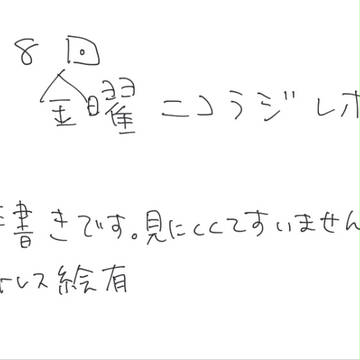 8回
金曜ニコラジレポ
手書きです。見にくくてすいません
レス絵有